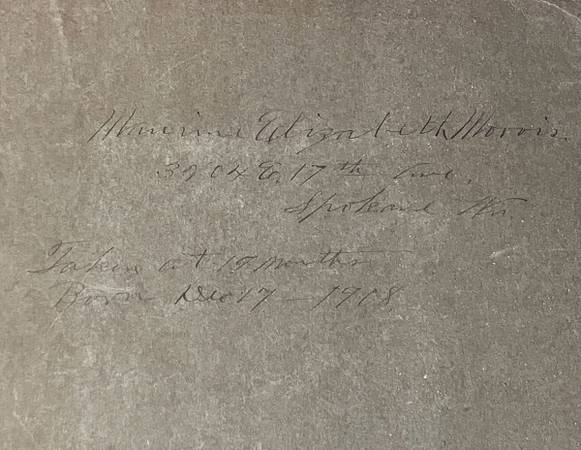 Maurine Elizabeth Morris.
3204 E. 17th Ave.
Spokane Wn
Taken at 19 months
Born Dec 17 – 1908